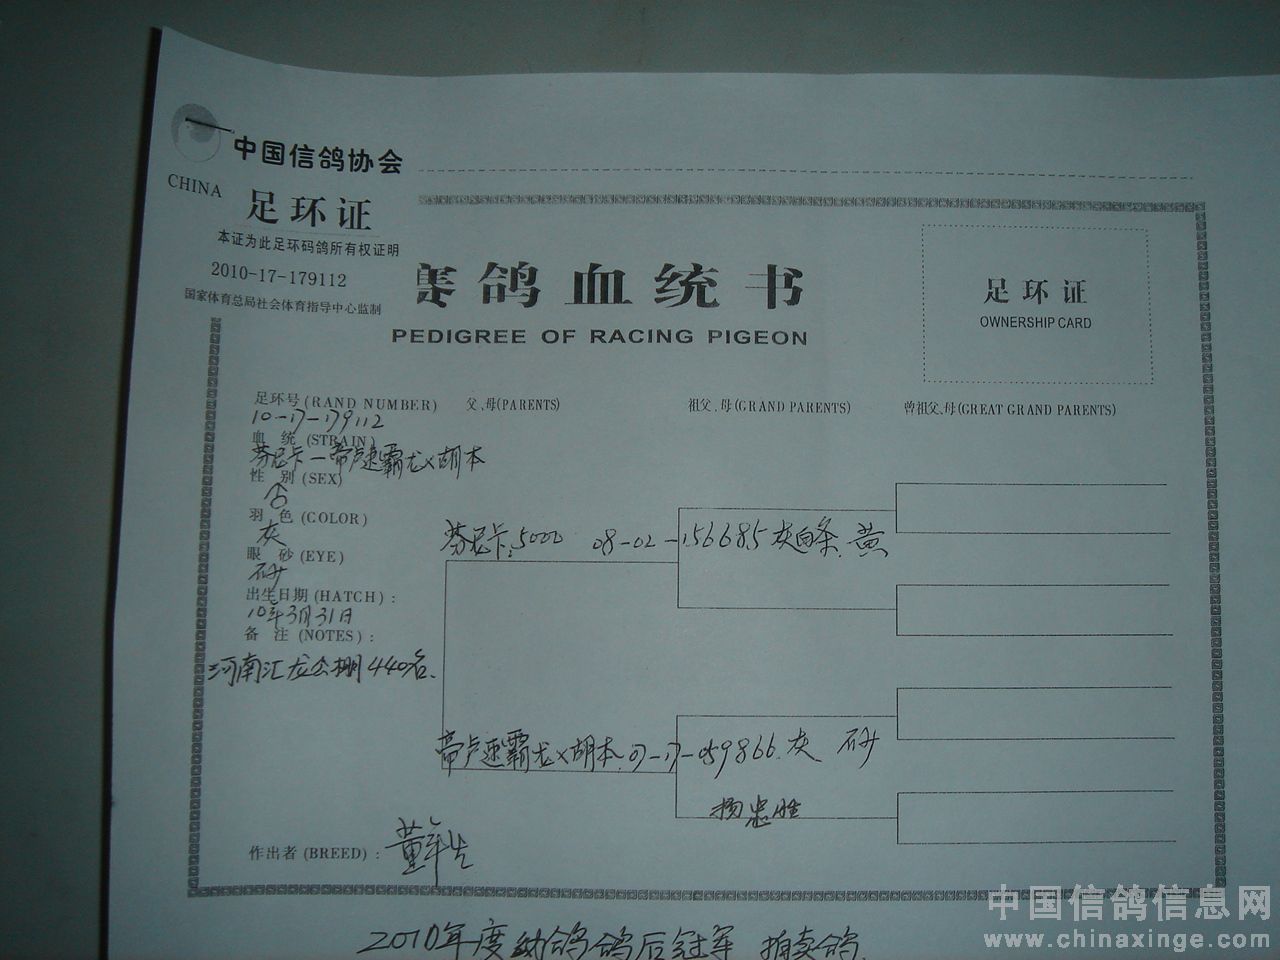 中国信鸽协会
CHINA
足环证
本证为此足环码鸽所有权证明
2010-17-179112
国家体育总局社会体育指导中心监制
鸽血统书
PEDIGREE OF RACING PIGEON
足环证
OWNERSHIP CARD
足环号 (RAND NUMBER)
父、母(PARENTS)
祖父、母(GRAND PARENTS)
曾祖父、母(GREAT GRAND PARENTS)
10-17-179112
血 统 (STRAIN)
芬尼卡—帝卢速霸龙×胡本
性 别 (SEX)
羽 色 (COLOR)
灰
眼 砂 (EYE)
砂
出生日期 (HATCH) :
10年3月31日
备 注 (NOTES) :
河南汇龙公棚440名.
芬尼卡:5000 08-02-156685 灰白条.黄
帝卢速霸龙×胡本.07-17-059866.灰 砂
杨忠胜
作出者 (BREED) :
董
2010年度 鸽后冠军 拍卖鸽.
中国信鸽信息网
www.chinaxinge.com